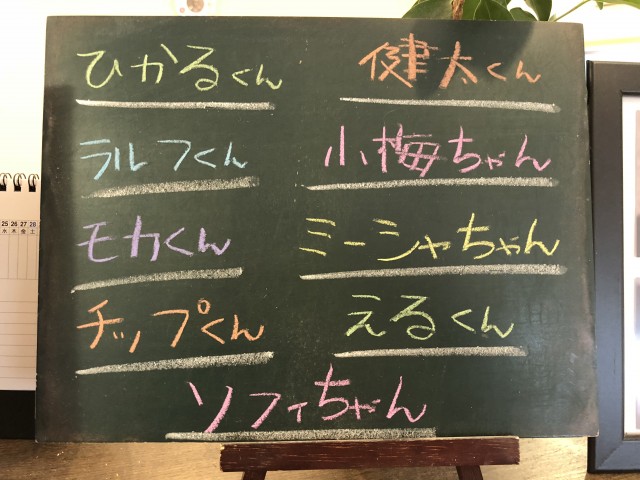 ひかるくん 健太くん
ラルフくん 小梅ちゃん
モカくん ミーシャちゃん
チップくん えるくん
ソフィちゃん
25 26 27 28
水 木 金 土